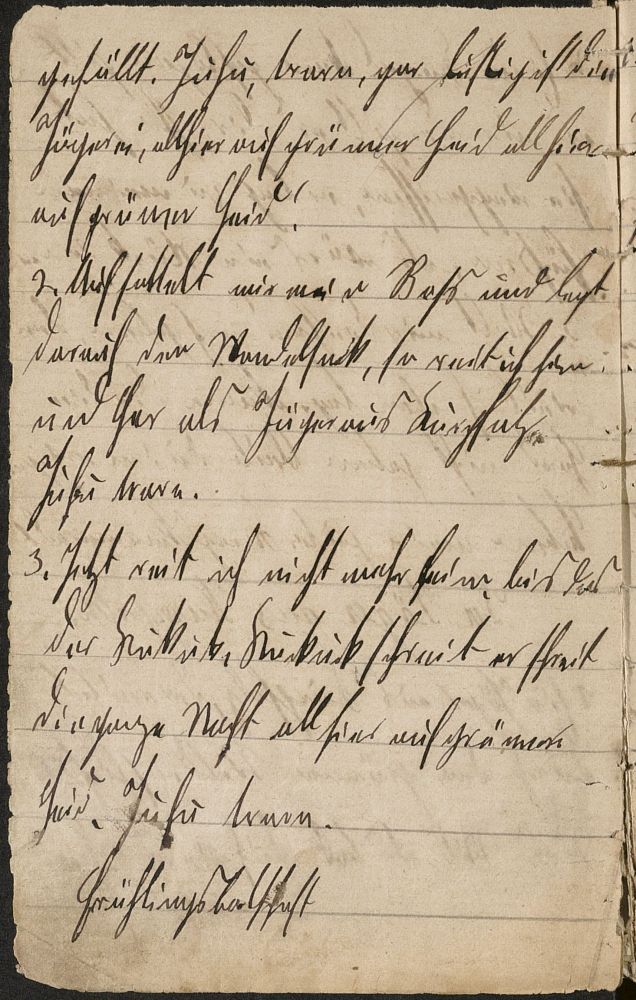 gefällt. Juhu, trara, gar lustig ist die
Jägerei, allhier auf grünner Heid all hier
auf grünner Heid!
2. Auf sattelt mir mein Ross und legt
darauf den Mandelsak, so reit ich hin
und her als Jäger aus Kurpfalz.
Juhu trara.
3. Jetzt reit ich nicht mehr heim, bis das
der Kukuk, Kuckuk schreit er schreit
die ganze Nacht all hier auf grünner
Heid. Juhu trara.
Frühlingsbotschaft